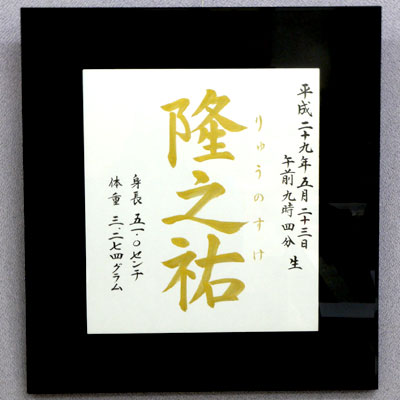 平成二十九年五月二十三日
午前九時四分 生
りゅうのすけ
隆之祐
身長 五一.〇センチ
体重 三.二七四グラム